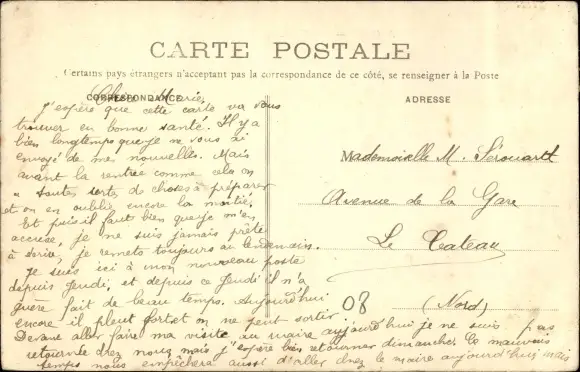 CARTE POSTALE
Certains pays étrangers n'acceptent pas la correspondance de ce côté, se renseigner à la Poste
CORRESPONDANCE
ADRESSE
Chère Marie,
J'espère que cette carte va vous
trouver en bonne santé. Il y a
bien longtemps que je ne vous ai
envoyé de mes nouvelles. Mais
avant la rentrée comme cela on
a toutes sortes de choses à préparer
et on en oublie encore la moitié.
Et puis il faut bien que je m'en
accuse, je ne suis jamais prête
à écrire, je remets toujours au lendemain.
Je suis ici à mon nouveau poste
depuis jeudi, et depuis ce jeudi il n'a
guère fait de beau temps. Aujourd'hui
encore il pleut fort et on ne peut sortir
Devant aller faire ma visite au maire aujourd'hui je ne suis pas
retournée chez nous mais j'espère bien retourner dimanche. Ce mauvais
temps nous empêchera aussi d'aller chez le maire aujourd'hui mais
Mademoiselle M.
Avenue de la Gare
Le Cateau
08 (Nord)